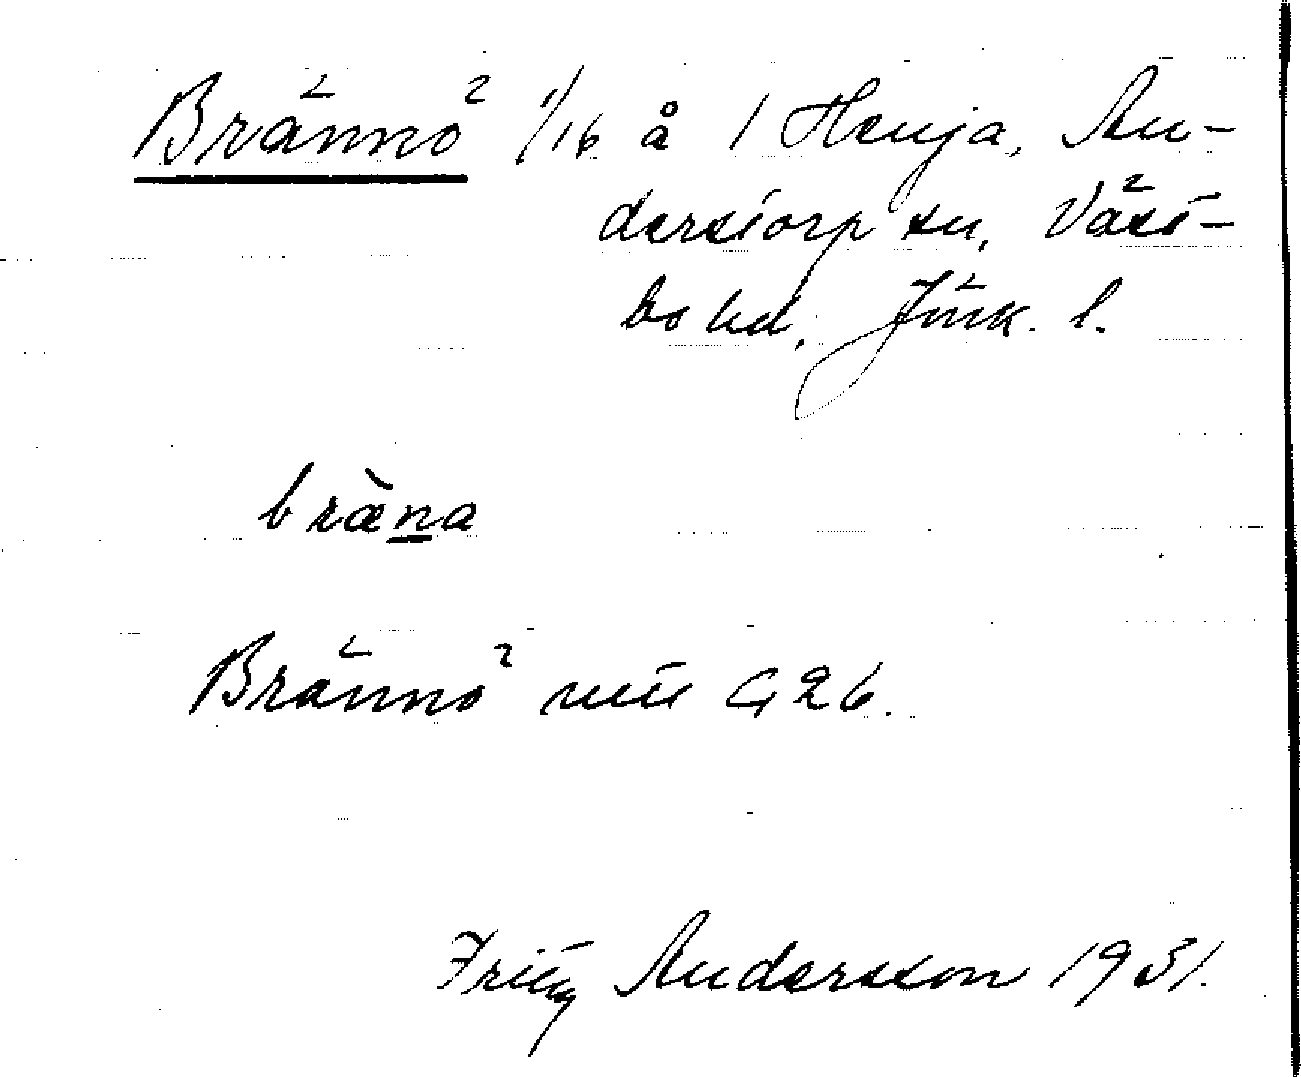 Brännö 1/16 å 1 Henja, An-
derstorp sn, Väst-
bo hd, Jönk. l.
bræ̀na
Brännö mtl G 26.
Fritz Andersson 1931.